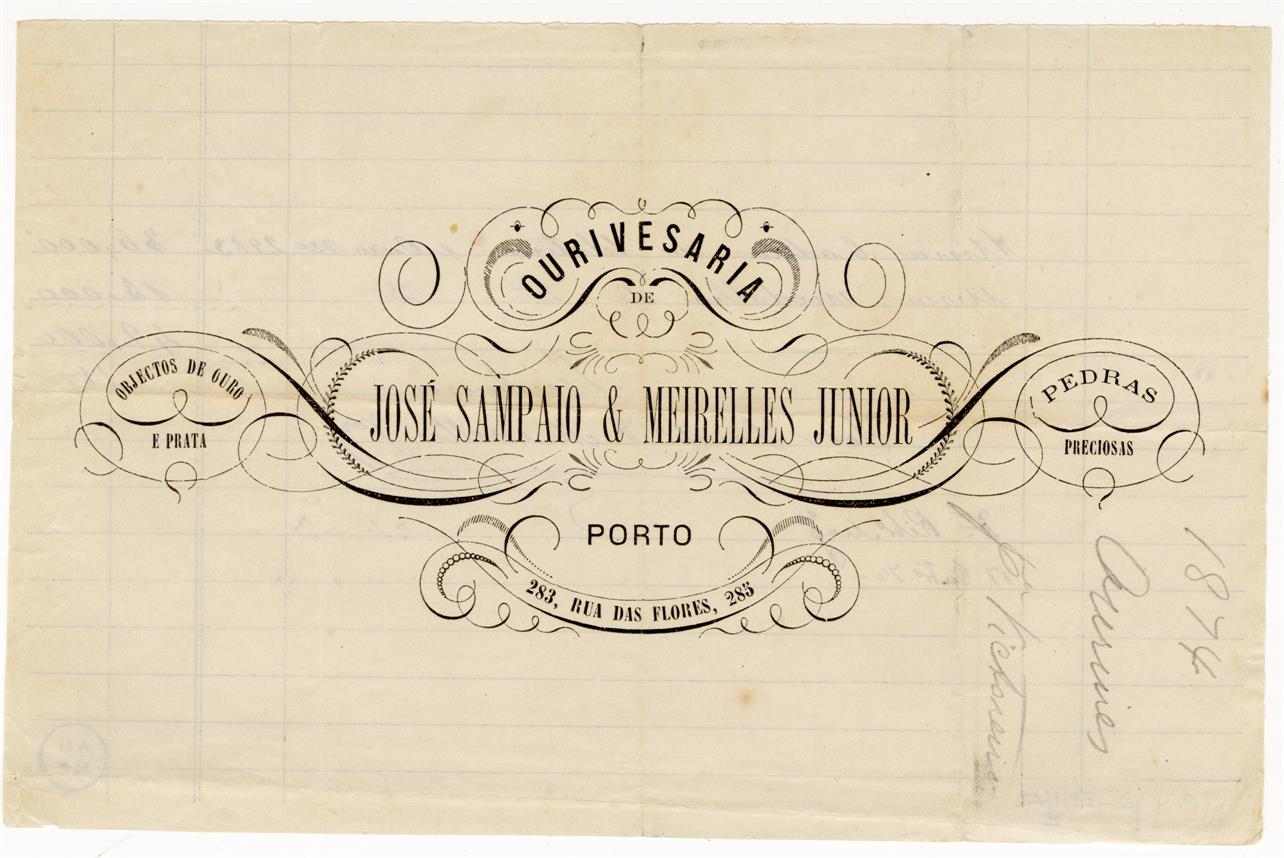 OURIVESARIA
DE
JOSÉ SAMPAIO & MEIRELLES JUNIOR
OBJECTOS DE OURO
E PRATA
PEDRAS
PRECIOSAS
PORTO
283, RUA DAS FLORES, 285
1874
Ourives